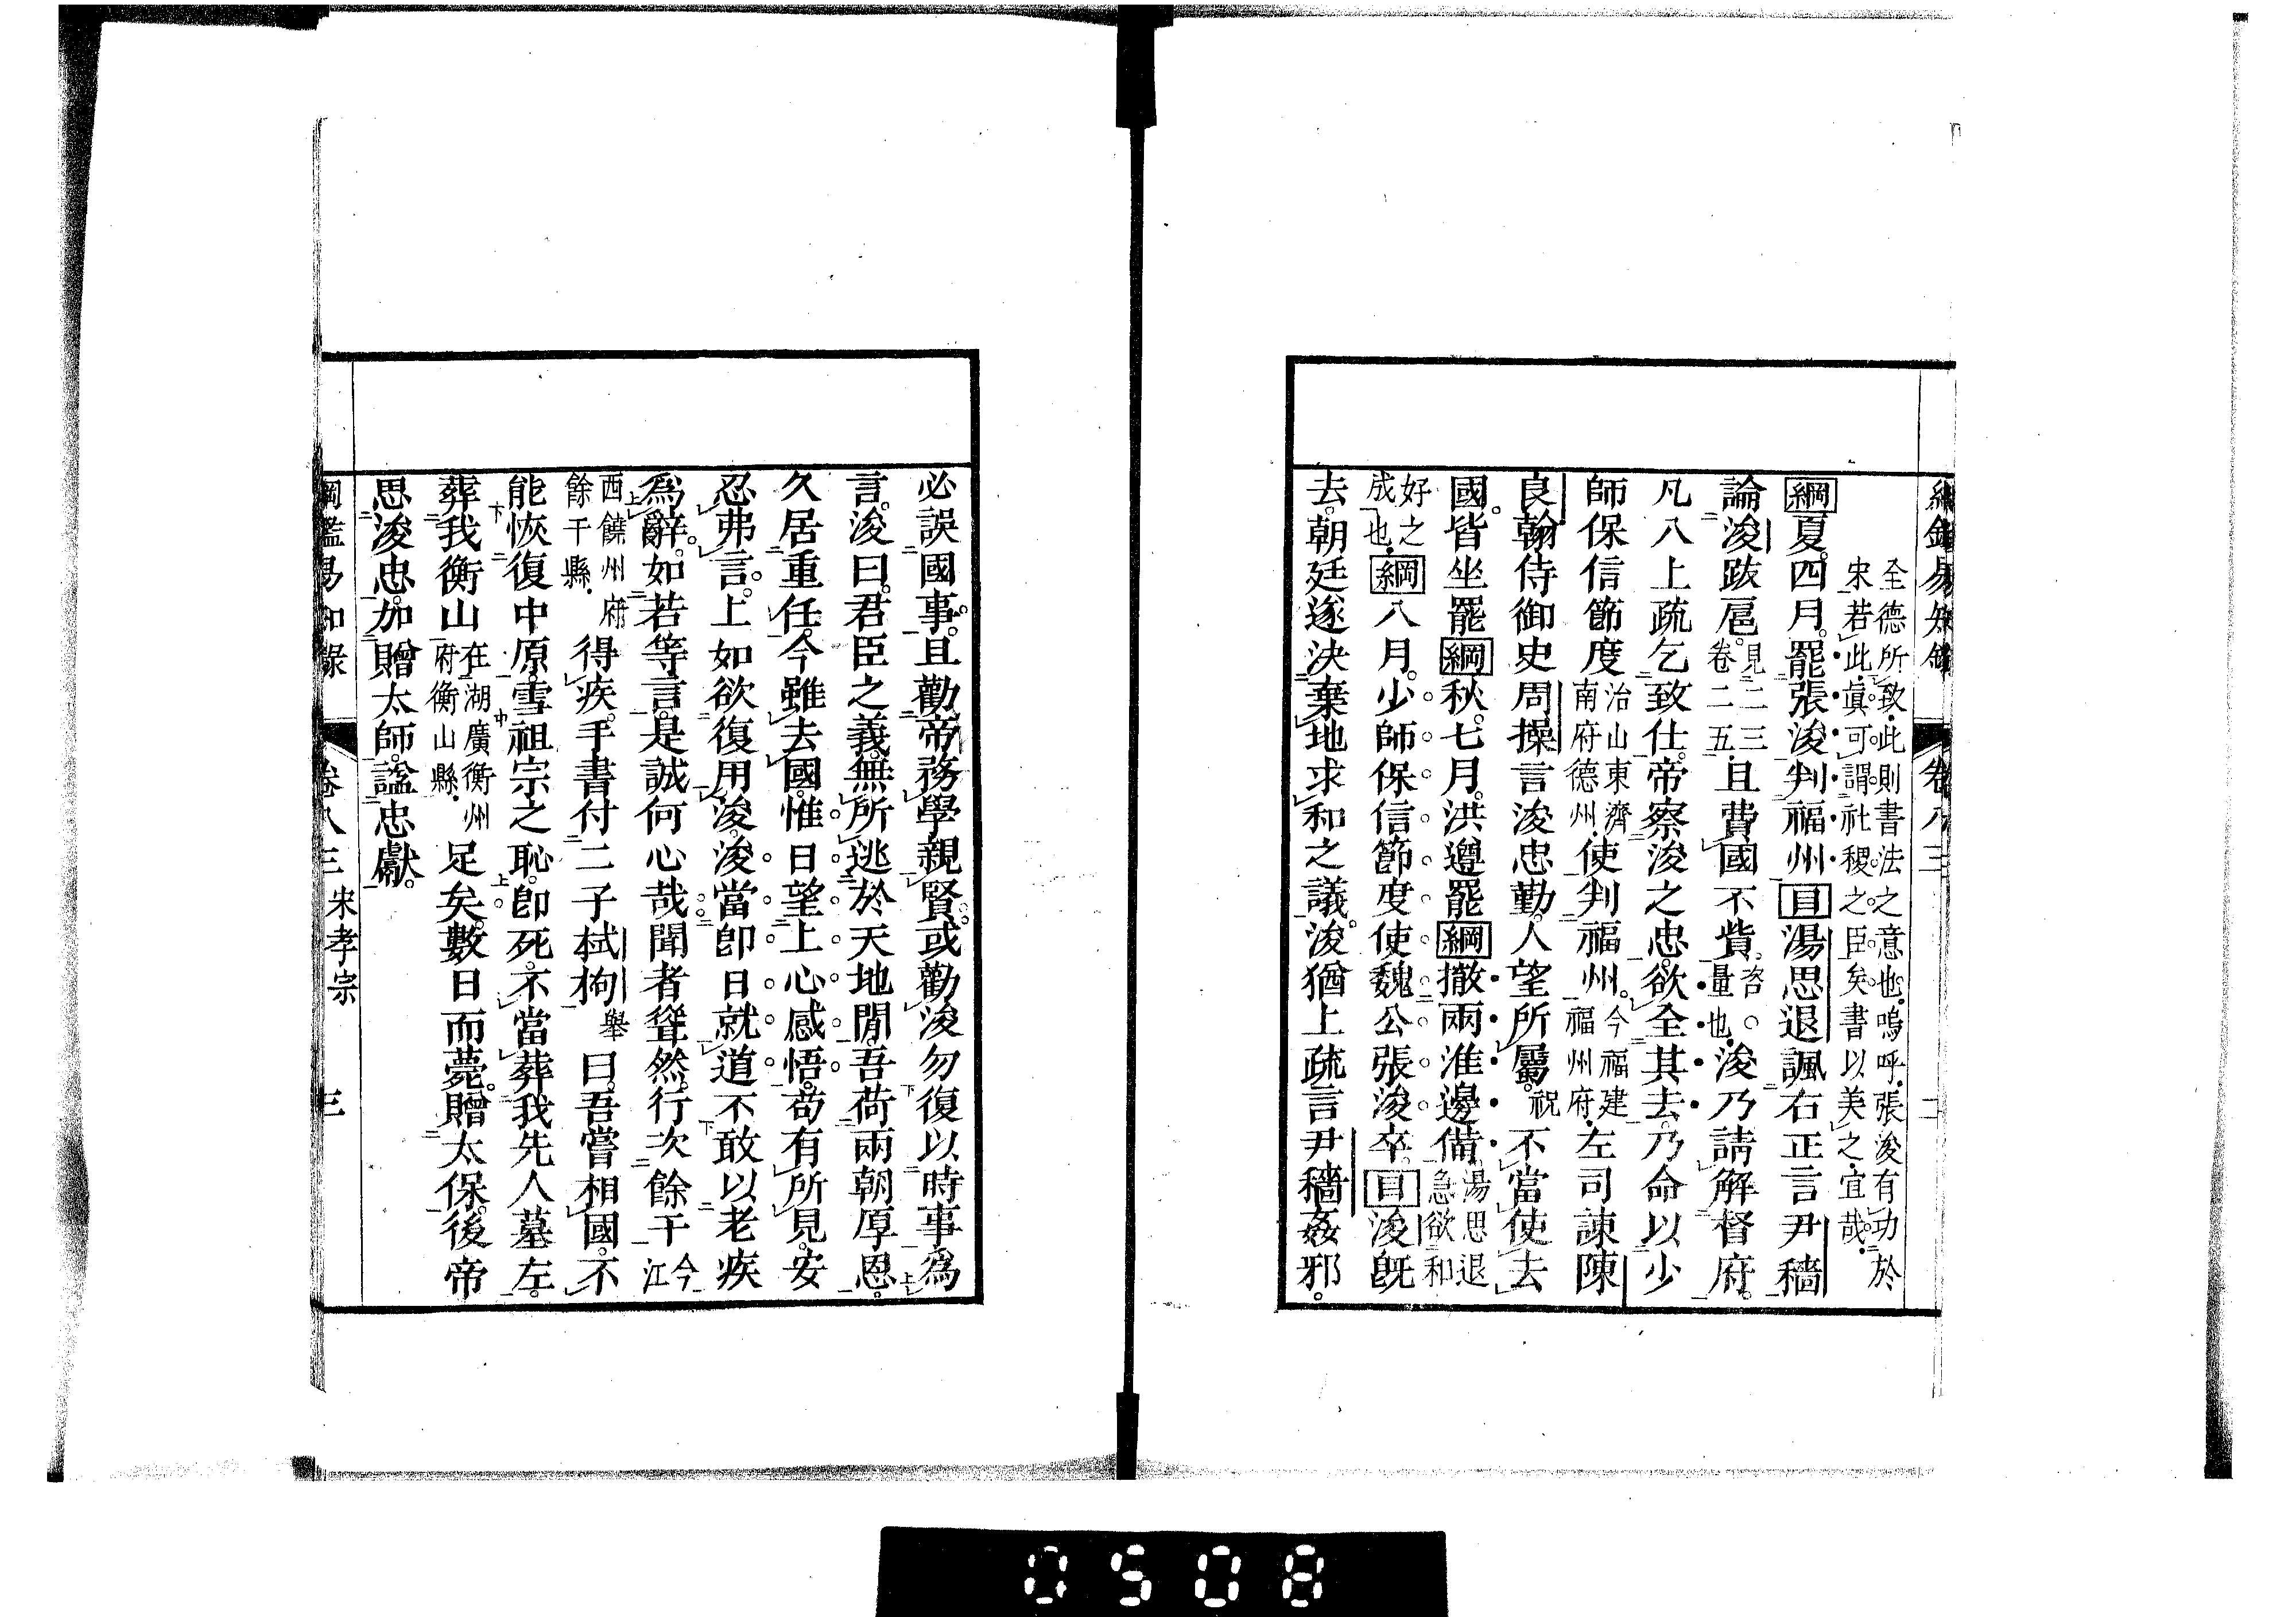 綱鑑易知錄 卷八三 二
全德所致此則書法之意也嗚呼張浚有功於
宋若此眞可謂社稷之臣矣書以美之宜哉
綱夏四月罷張浚判福州目湯思退諷右正言尹穡
論浚跋扈見二三卷二五且費國不貲咨○量也浚乃請解督府
凡八上疏乞致仕帝察浚之忠欲全其去乃命以少
師保信節度治山東濟南府德州使判福州今福建福州府左司諫陳
良翰侍御史周操言浚忠勤人望所屬祝不當使去
國皆坐罷綱秋七月洪遵罷綱撤兩淮邊備湯思退急欲和
好之成也綱八月少師保信節度使魏公張浚卒目浚旣
去朝廷遂決棄地求和之議浚猶上疏言尹穡姦邪
必誤國事且勸帝務學親賢或勸浚勿復以時事爲
言浚曰君臣之義無所逃於天地閒吾荷兩朝厚恩
久居重任今雖去國惟日望上心感悟苟有所見安
忍弗言上如欲復用浚浚當卽日就道不敢以老疾
爲辭如若等言是誠何心哉聞者聳然行次餘干今江
西饒州府餘干縣得疾手書付二子栻枃舉曰吾嘗相國不
能恢復中原雪祖宗之恥卽死不當葬我先人墓左
葬我衡山在湖廣衡州府衡山縣足矣數日而薨贈太保後帝
思浚忠加贈太師諡忠獻
綱鑑易知錄 卷八三 宋孝宗 三
0508